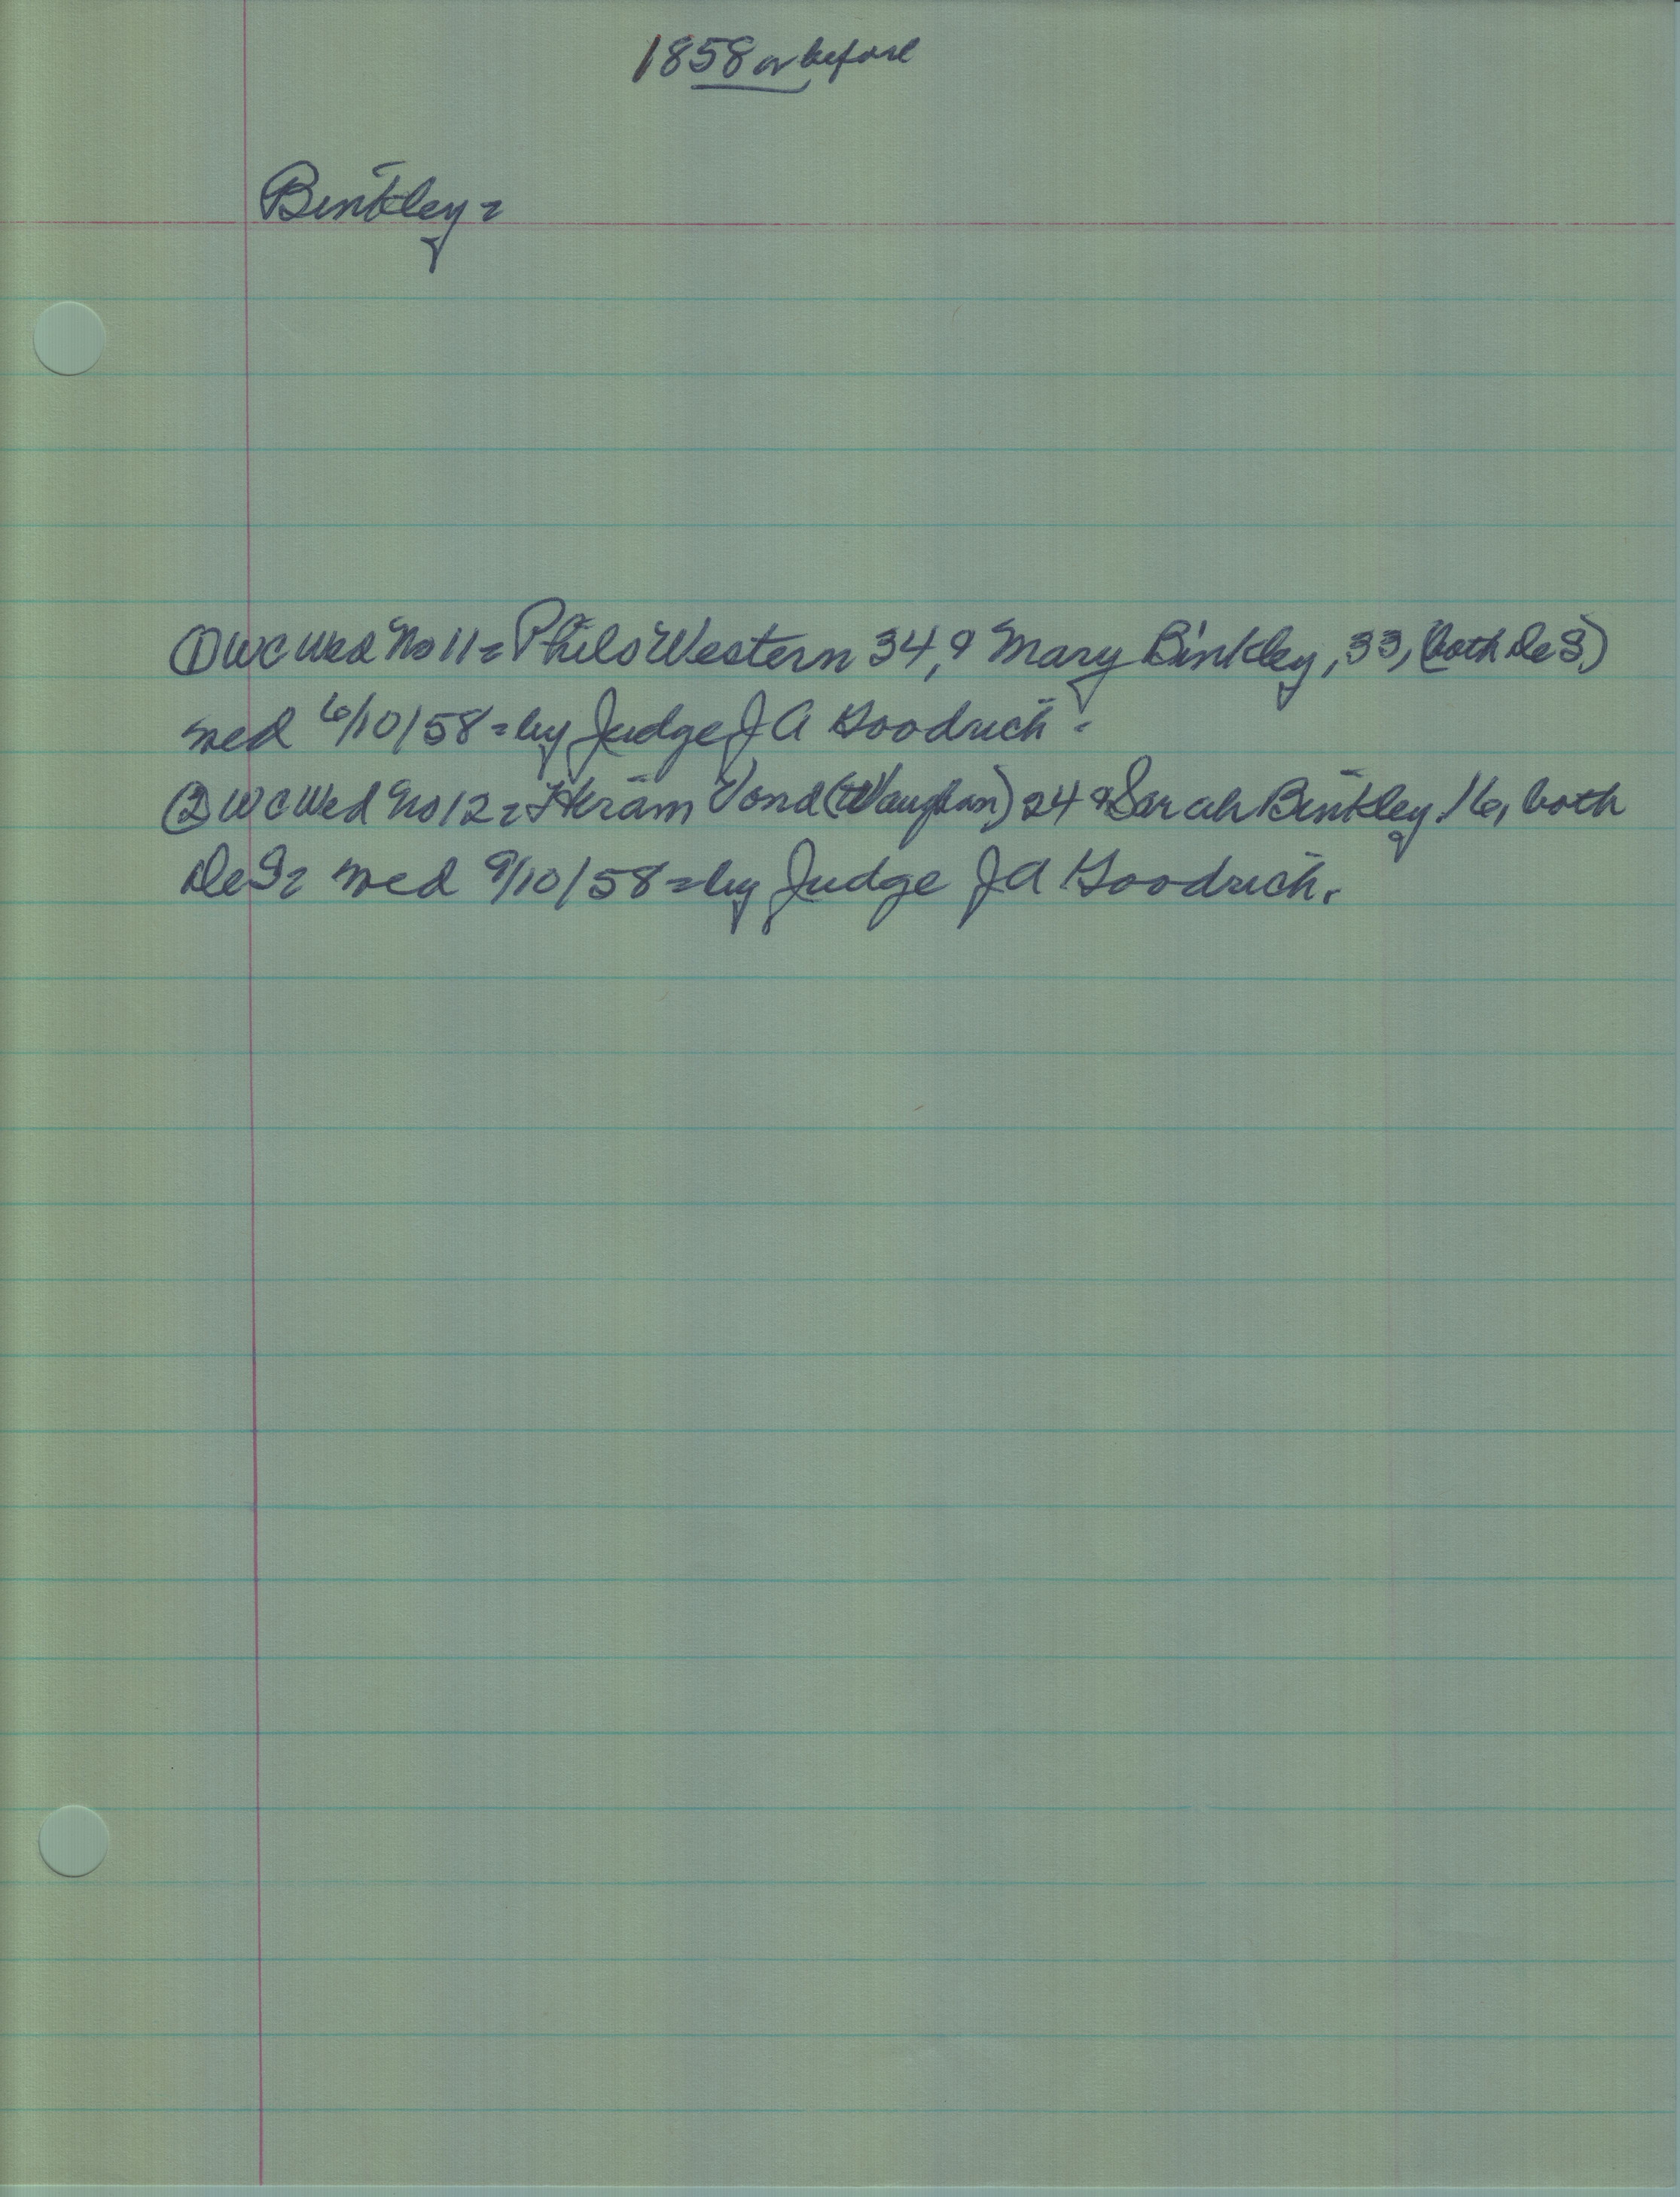 1858 or before
Binkley =
① WC Wed No 11 = Philo Western 34, & Mary Binkley, 33, (both De S)
wed 6/10/58 = by Judge J A Goodrich =
② WC Wed No 12 = Hiram Vond (Vaughan) 24 & Sarah Binkley 16, both
De S = wed 9/10/58 = by Judge J A Goodrich.